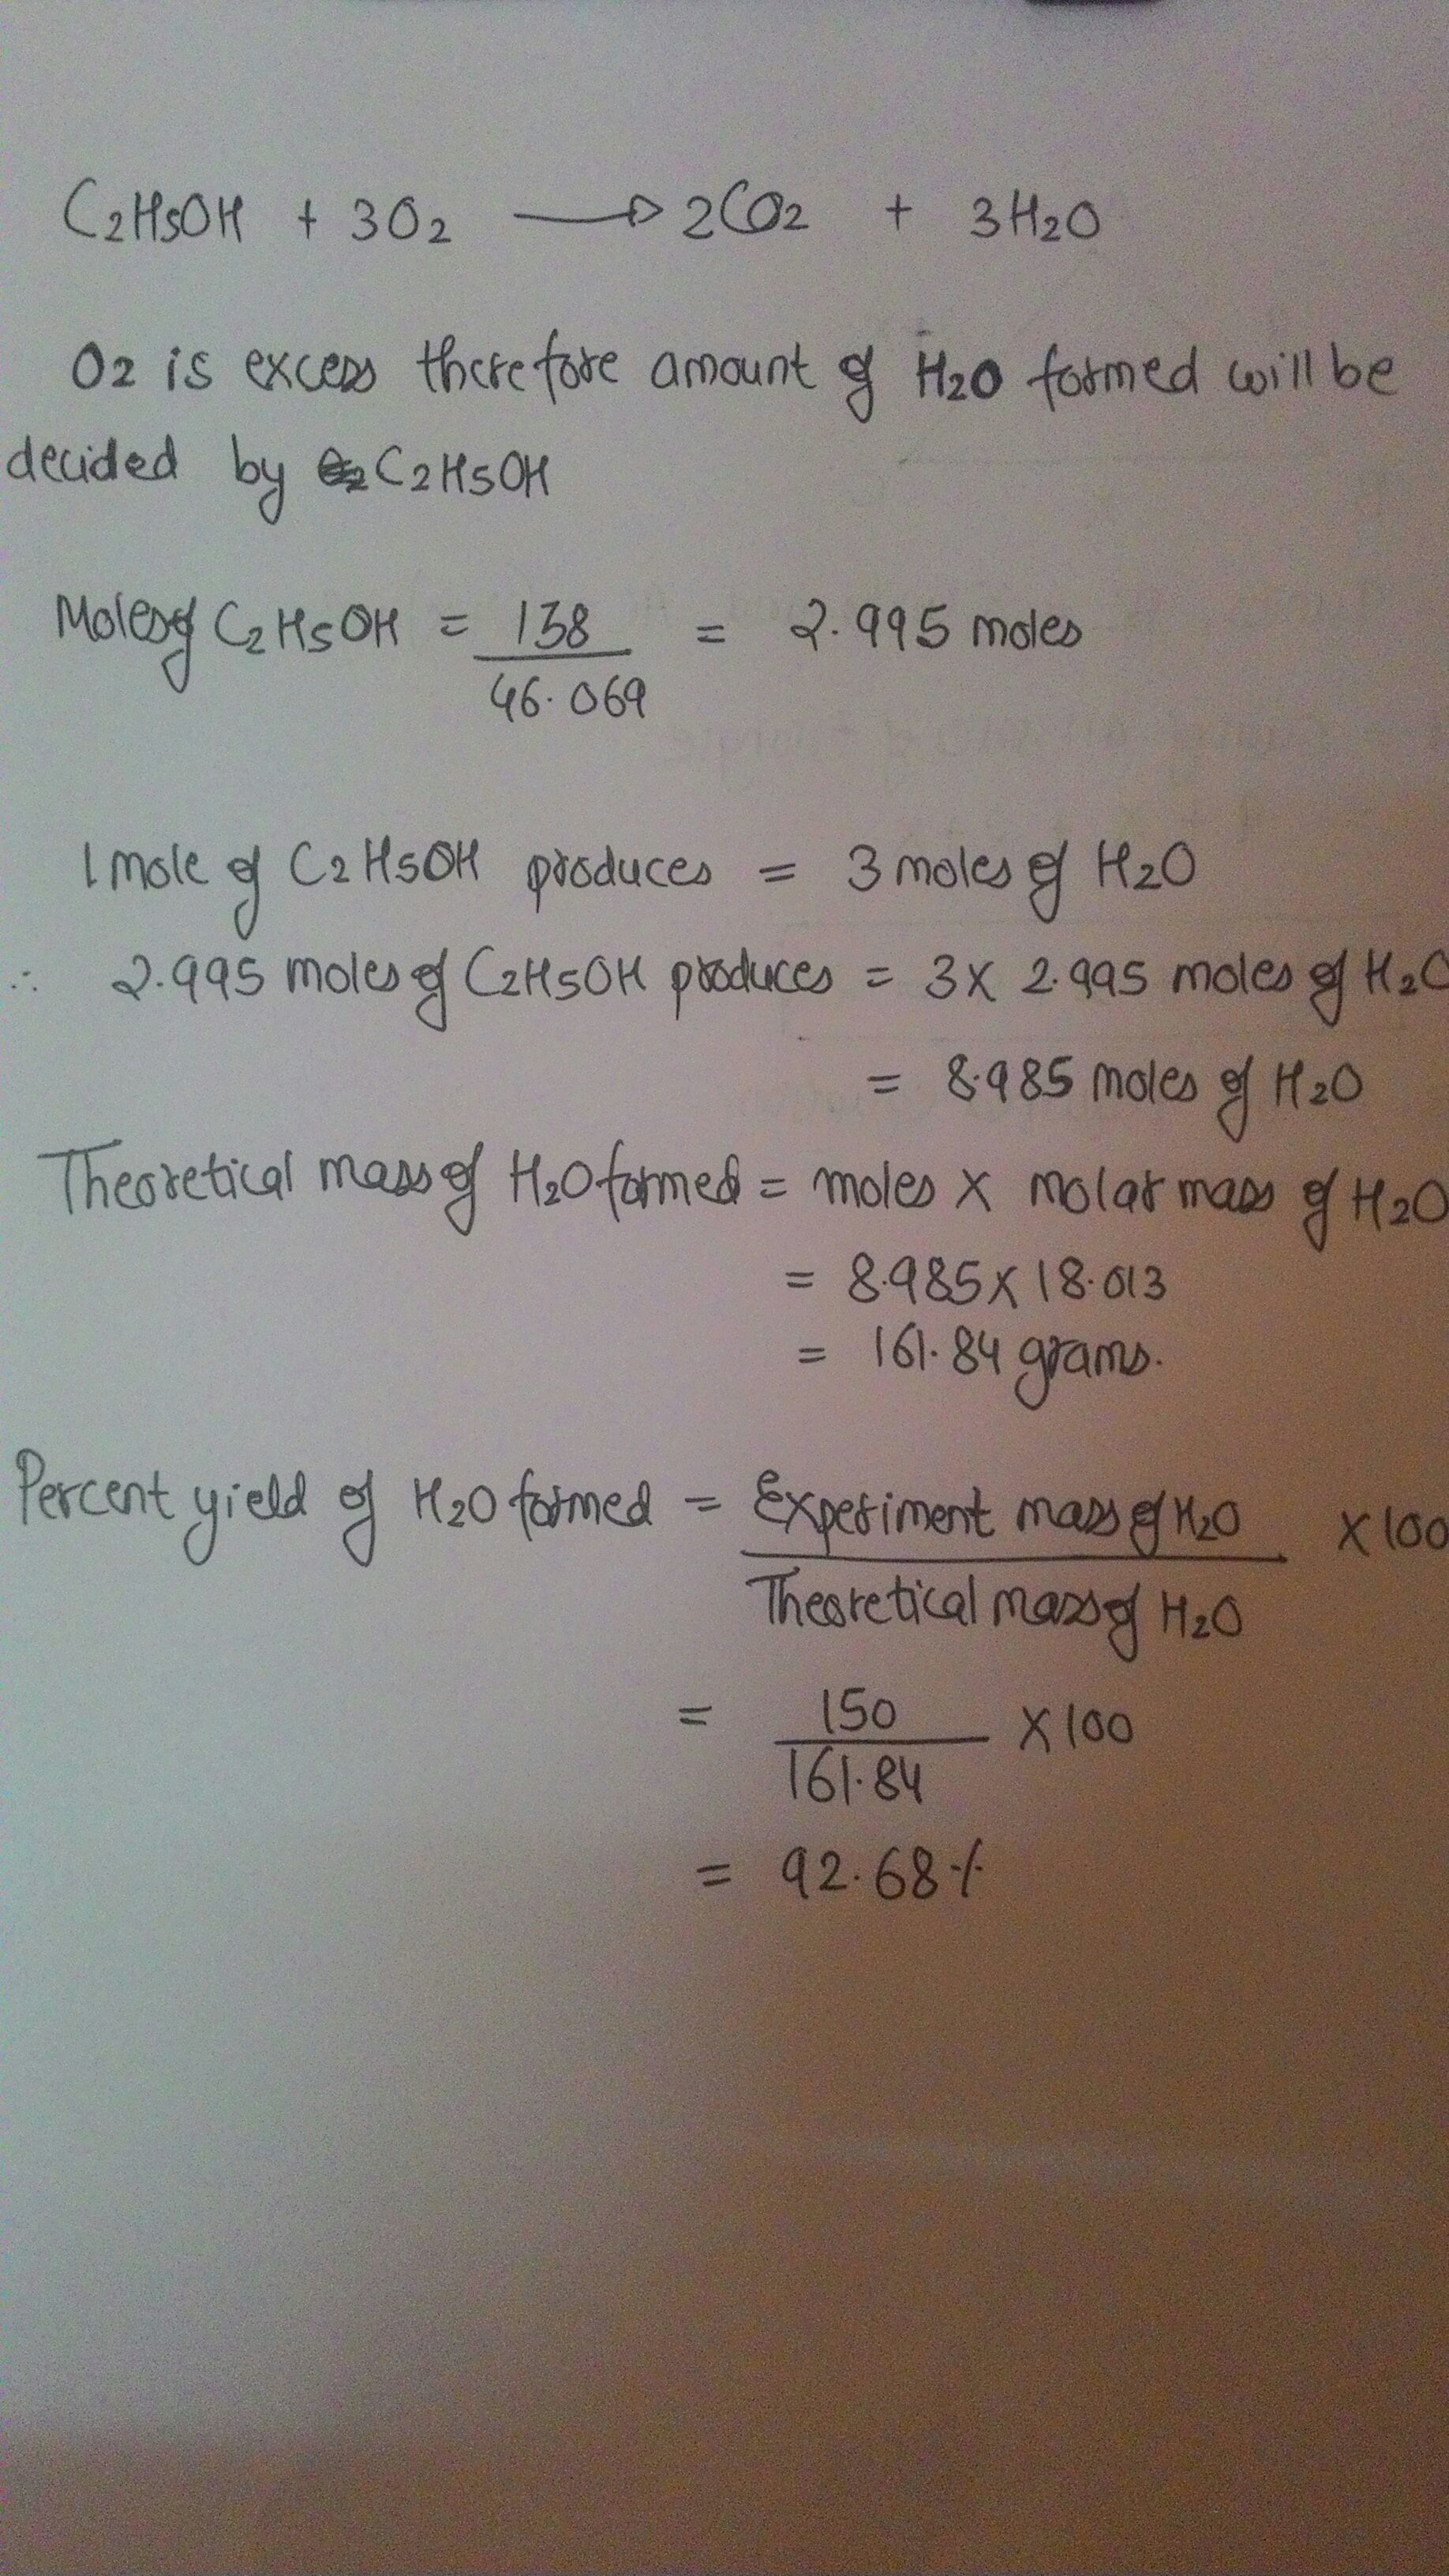 C2H5OH + 3O2 → 2CO2 + 3H2O
O2 is excess therefore amount of H2O formed will be
decided by C2H5OH
Moles of C2H5OH = 138 = 2.995 moles
46.069
1 mole of C2H5OH produces = 3 moles of H2O
∴ 2.995 moles of C2H5OH produces = 3 X 2.995 moles of H2O
= 8.985 moles of H2O
Theoretical mass of H2O formed = moles X molar mass of H2O
= 8.985 X 18.013
= 161.84 grams.
Percent yield of H2O formed = Experiment mass of H2O X 100
Theoretical mass of H2O
= 150 X 100
161.84
= 92.68 %